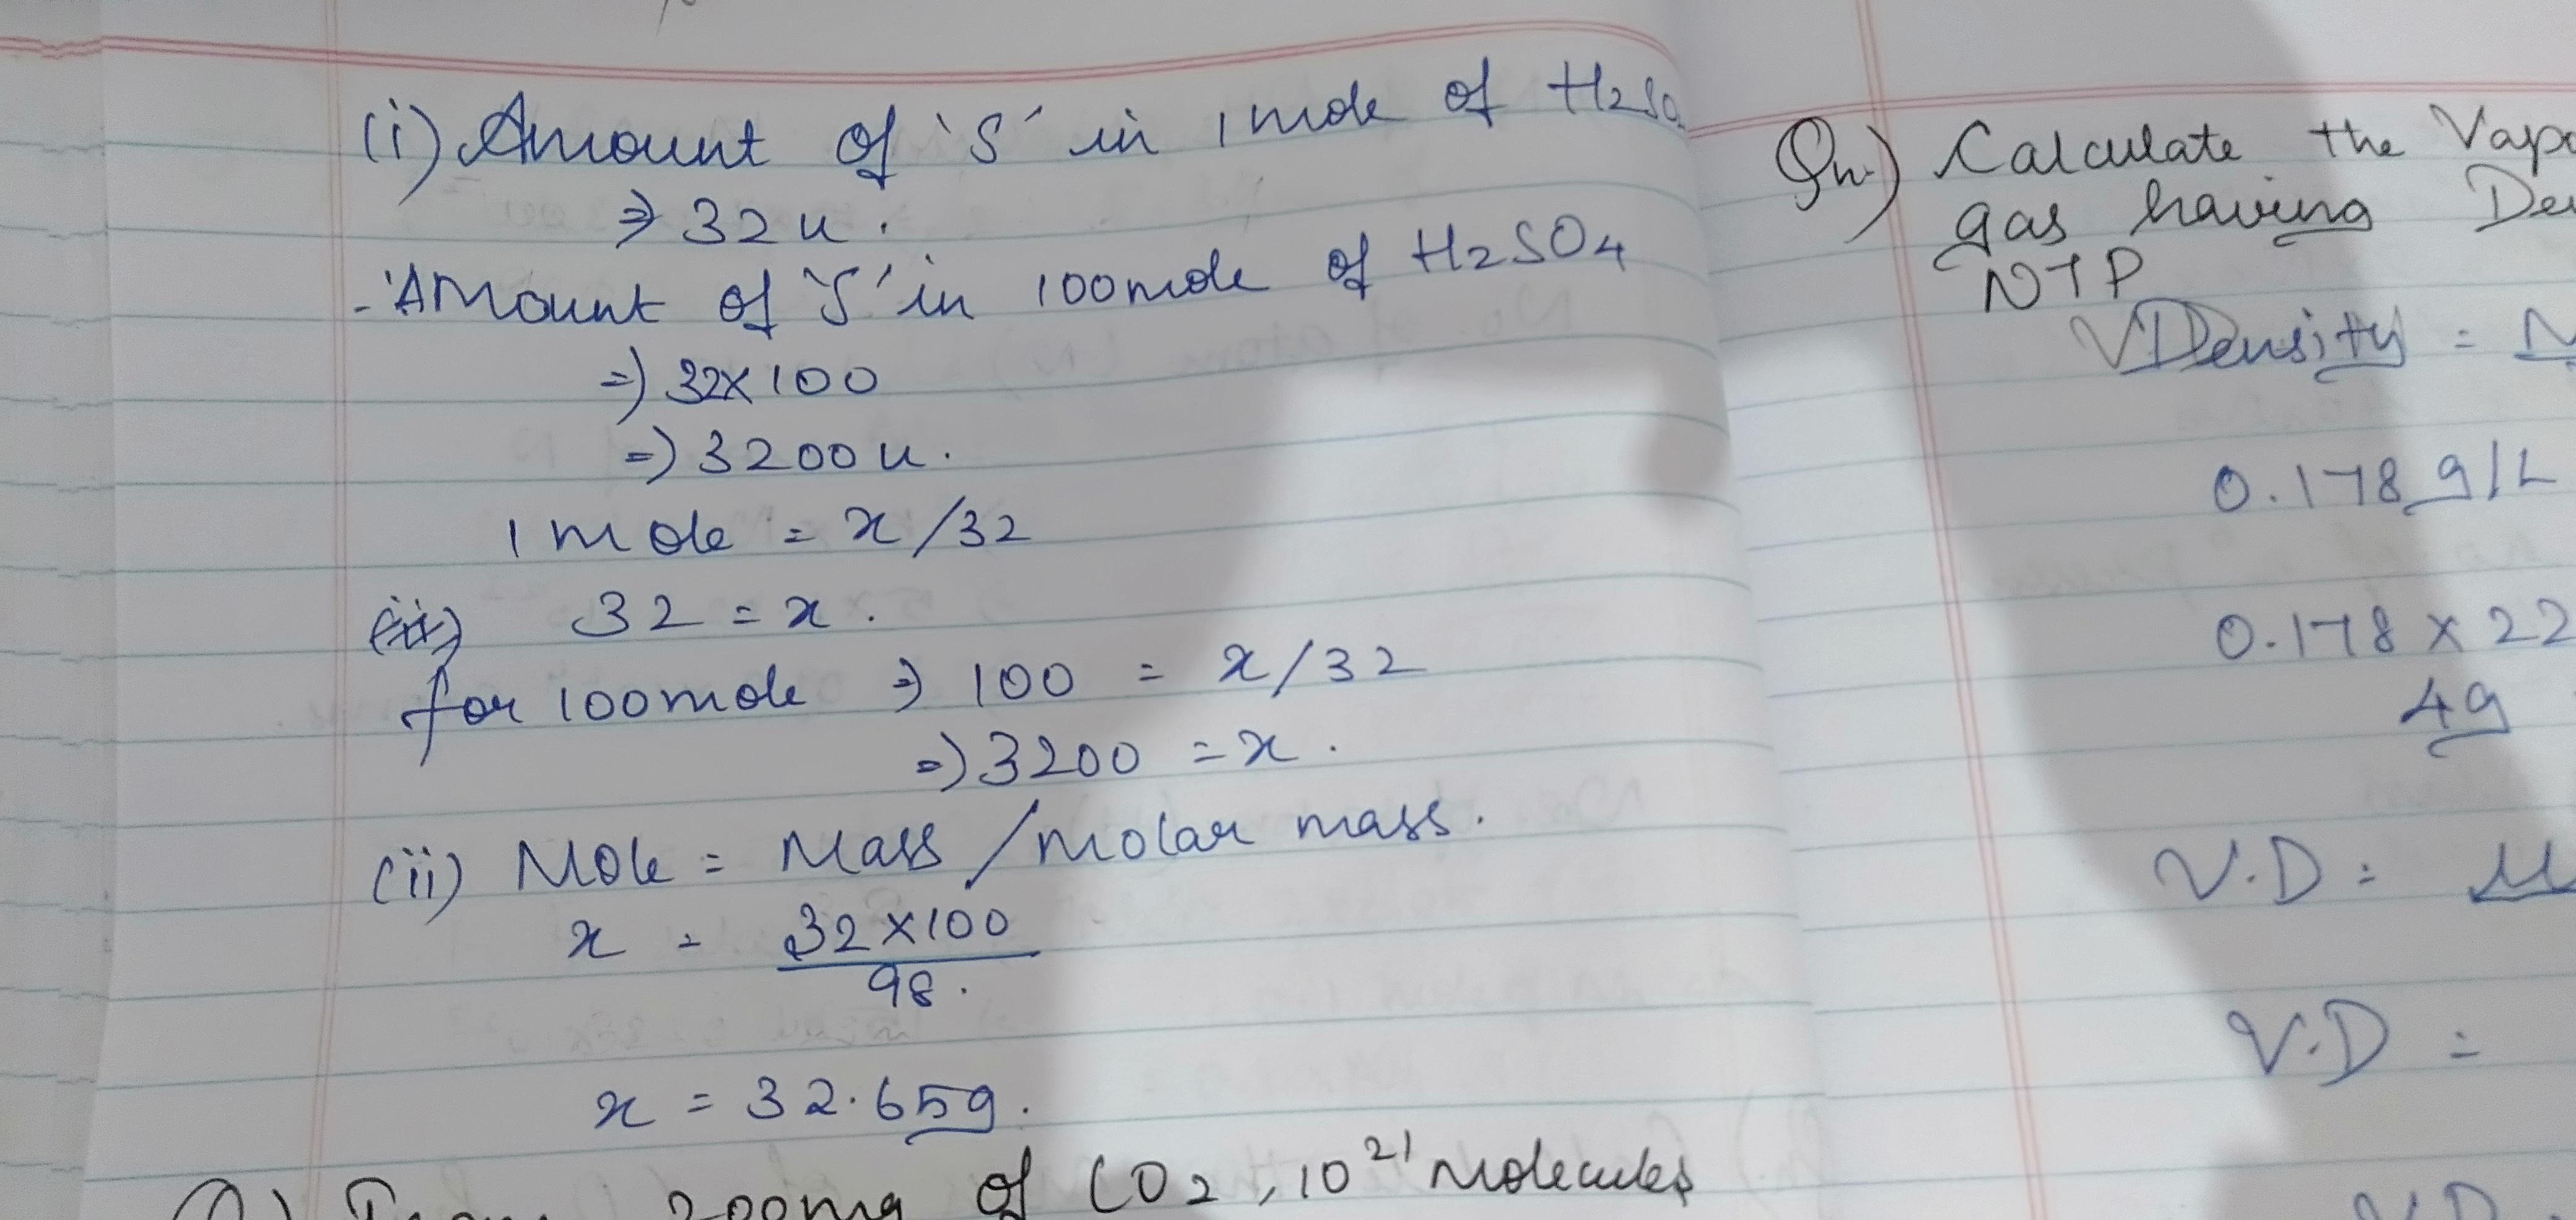 (i) Amount of 'S' in 1 mole of H2SO
⇒ 32 u.
- Amount of 'S' in 100 mole of H2SO4
⇒ 32×100
⇒ 3200 u.
1 mole = x/32
(ii) 32 = x.
for 100 mole ⇒ 100 = x/32
⇒ 3200 = x.
(ii) Mole = Mass / Molar mass.
x = 32×100
98.
x = 32.65g.
200mg of CO2, 10^21 Molecules
Qn.) Calculate the Vap
gas having De
NTP
VDensity =
0.178 g/L
0.178 × 22
4g
V.D =
V.D =
V.D